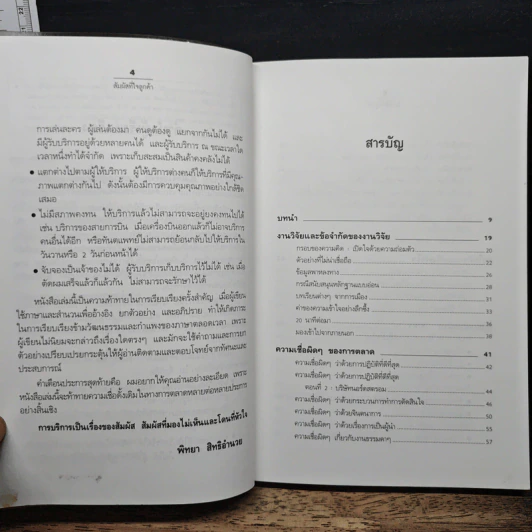 4
สัมผัสที่ใจลูกค้า
การเล่นละคร ผู้เล่นต้องมา คนดูต้องดู แยกจากกันไม่ได้ และ
มีผู้รับบริการอยู่ด้วยหลายคนได้ และผู้รับบริการ ณ ขณะเวลาใด
เวลาหนึ่งทำได้จำกัด เพราะเก็บสะสมเป็นสินค้าคงคลังไม่ได้
● แตกต่างไปตามผู้ให้บริการ ผู้ให้บริการต่างคนก็ให้บริการที่มีคุณ-
ภาพแตกต่างกันไป ดังนั้นต้องมีการควบคุมคุณภาพอย่างใกล้ชิด
เสมอ
● ไม่มีสภาพคงทน ให้บริการแล้วไม่สามารถจะอยู่ยงคงทนไปได้
เช่น บริการของสายการบิน เมื่อเครื่องบินออกแล้วก็ไม่อาจบริการ
คนอื่นได้อีก หรือทันตแพทย์ไม่สามารถย้อนกลับไปให้บริการใน
วันวานหรือ 2 วันก่อนหน้าได้
● จับจองเป็นเจ้าของไม่ได้ ผู้รับบริการเก็บบริการไว้ไม่ได้ เช่น เมื่อ
ตัดผมเสร็จแล้วก็แล้วกัน ไม่สามารถจะรักษาไว้ได้
หนังสือเล่มนี้เป็นความท้าทายในการเรียบเรียงครั้งสำคัญ เมื่อผู้เขียน
ใช้ภาษาและสำนวนเพื่ออ้างอิง ยกตัวอย่าง และอภิปราย ทำให้เกิดภาระ
ในการเรียบเรียงข้ามวัฒนธรรมและกำแพงของภาษาตลอดเวลา เพราะ
ผู้เขียนไม่นิยมจะกล่าวถึงเรื่องใดตรงๆ และมักจะใช้คำถามและการยก
ตัวอย่างเปรียบเปรยกระตุ้นให้ผู้อ่านติดตามและตอบโจทย์จากทัศนะและ
ประสบการณ์
คำเตือนประการสุดท้ายคือ ผมอยากให้คุณอ่านอย่างละเอียด เพราะ
หนังสือเล่มนี้จะท้าทายความเชื่อดั้งเดิมในทางการตลาดหลายต่อหลายประการ
อย่างสิ้นเชิง
การบริการเป็นเรื่องของสัมผัส สัมผัสที่มองไม่เห็นและโดนที่หัวใจ
พิทยา สิทธิอำนวย
สารบัญ
บทนำ 9
งานวิจัยและข้อจำกัดของงานวิจัย 19
กรอบของความคิด - เปิดใจด้วยความถ่อมตัว 20
ตัวอย่างที่ไม่น่าเชื่อถือ 22
ข้อมูลพาหลงทาง 26
กรณีสนับสนุนหลักฐานแบบอ่อน 28
บทเรียนต่างๆ จากการเมือง 31
ค่าของความเข้าใจอย่างลึกซึ้ง 33
20 นาทีต่อมา 36
มองเข้าไปจากภายนอก 38
ความเชื่อผิดๆ ของการตลาด 41
ความเชื่อผิดๆ ว่าด้วยการปฏิบัติที่ดีที่สุด 42
ความเชื่อผิดๆ ว่าด้วยการปฏิบัติที่ดีที่สุด
ตอนที่ 2 - บริษัทนอร์ดสตรอม 44
ความเชื่อผิดๆ ว่าด้วยกระบวนการทำการตัดสินใจ 46
ความเชื่อผิดๆ ว่าด้วยจินตนาการ 50
ความเชื่อผิดๆ ว่าด้วยเรื่องการเป็นผู้นำ 55
ความเชื่อผิดๆ เกี่ยวกับงานธรรมดาๆ 57